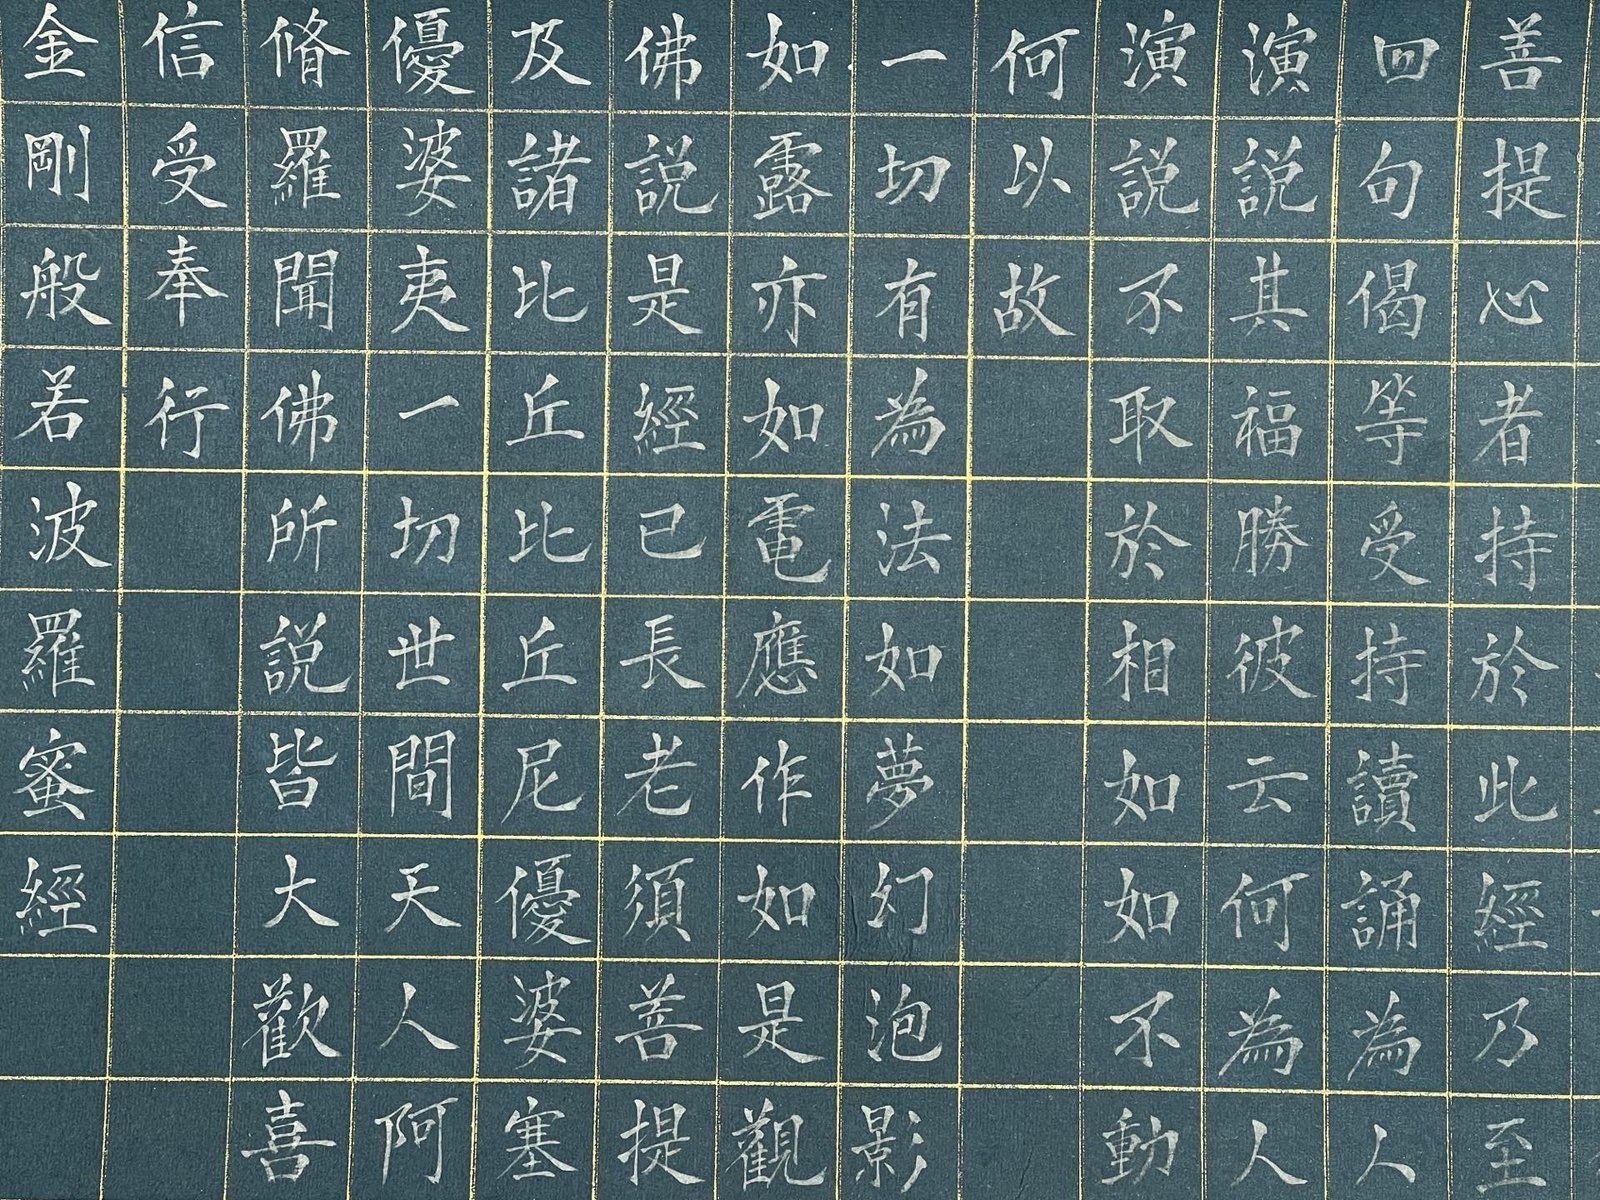 善提心者持於此經乃至
四句偈等受持讀誦為人
演說其福勝彼云何為人
演說不取於相如如不動
何以故
一切有為法如夢幻泡影
如露亦如電應作如是觀
佛說是經已長老須菩提
及諸比丘比丘尼優婆塞
優婆夷一切世間天人阿
脩羅聞佛所說皆大歡喜
信受奉行
金剛般若波羅蜜經